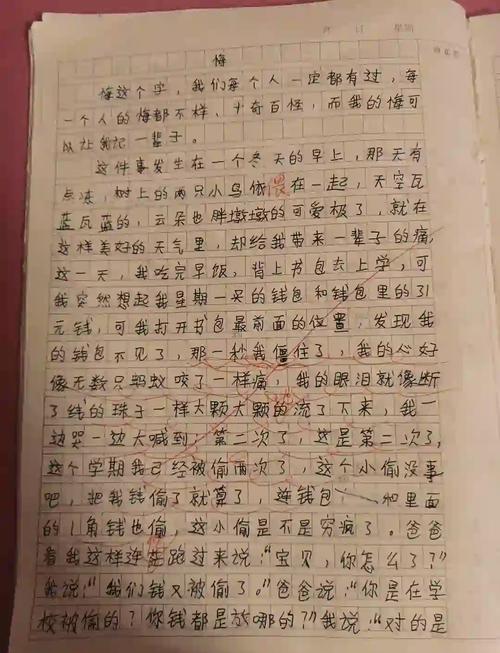 月 日 星期
悔
悔这个字，我们每个人一定都有过，每
一个人的悔都不样、十奇百怪，而我的悔可
以让我记一辈子。
这件事发生在一个冬天的早上，那天有
点冻，树上的两只小鸟依偎在一起，天空瓦
蓝瓦蓝的，云朵也胖墩墩的可爱极了，就在
这样美好的天气里，却给我带来一辈子的痛，
这一天，我吃完早饭，背上书包去上学，可
我突然想起我星期一买的钱包和钱包里的31
元钱，可我打开书包最前面的位置，发现我
的钱包不见了，那一秒我僵住了，我的心好
像无数只蚂蚁咬了一样痛，我的眼泪就像断
了线的珠子一样大颗大颗的流了下来，我一
边哭一边大喊到："第二次了，这是第二次了，
这个学期我已经被偷两次了，这个小偷没事
吧，把我钱偷了就算了，连钱包 和里面
的1角钱也偷，这小偷是不是穷疯了。爸爸
看我这样连 跑过来说："宝贝，你怎么了？"
我说："我们钱又被偷了。"爸爸说："你是在学
校被偷的？你钱都是放哪的？"我说："对的是